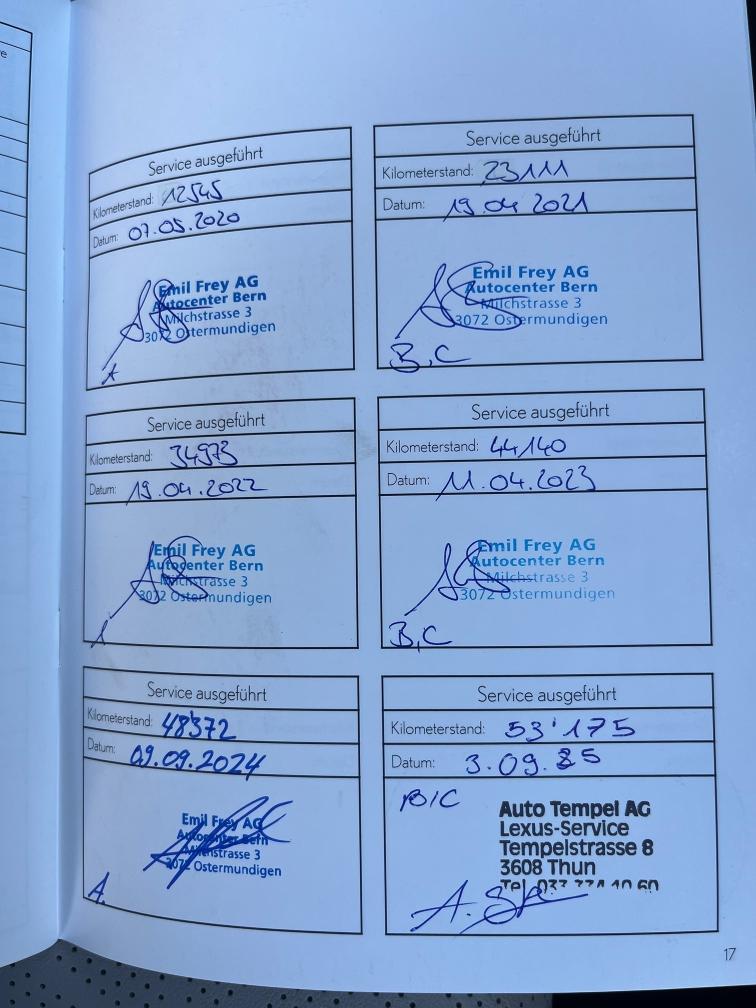 e
Service ausgeführt
Kilometerstand: 12545
Datum: 07.05.2020
Emil Frey AG
Autocenter Bern
Milchstrasse 3
3072 Ostermundigen
A
Service ausgeführt
Kilometerstand: 23111
Datum: 19.04 2021
Emil Frey AG
Autocenter Bern
Milchstrasse 3
3072 Ostermundigen
B,C
Service ausgeführt
Kilometerstand: 34973
Datum: 19.04.2022
Emil Frey AG
Autocenter Bern
Milchstrasse 3
3072 Ostermundigen
Service ausgeführt
Kilometerstand: 44140
Datum: 11.04.2023
Emil Frey AG
Autocenter Bern
Milchstrasse 3
3072 Ostermundigen
B,C
Service ausgeführt
Kilometerstand: 48'372
Datum: 09.09.2024
Emil Frey AG
Autocenter Bern
Milchstrasse 3
3072 Ostermundigen
A.
Service ausgeführt
Kilometerstand: 53'175
Datum: 3.09.25
B/C
Auto Tempel AG
Lexus-Service
Tempelstrasse 8
3608 Thun
Tel. 033 334 10 60
17